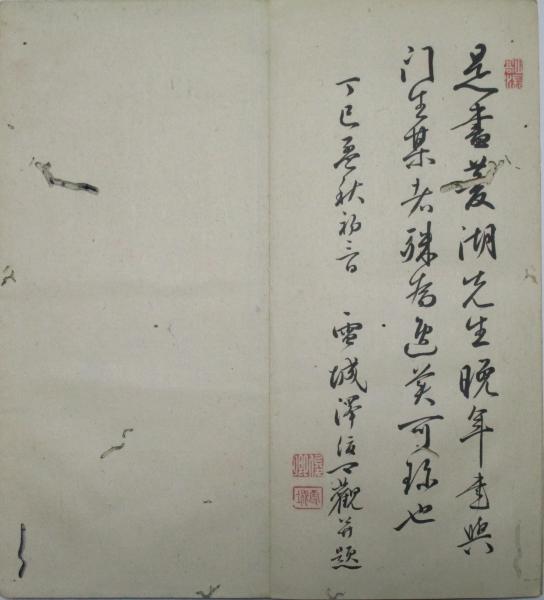 是書菱湖先生晚年書與
门生某者殊為美可珍也
丁巳孟秋初三日 雪城澤俊卿觀并題